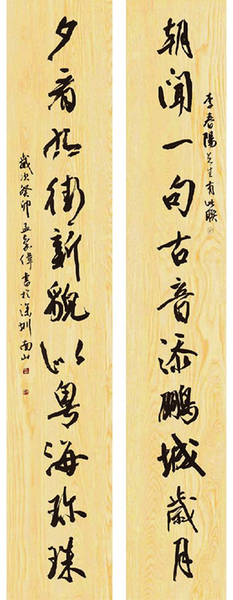 朝聞一句古音添鵬城歲月
李春陽先生有此聯
夕看夜街新貌似粵海珍珠
歲次癸卯孟春偉書於深圳南山